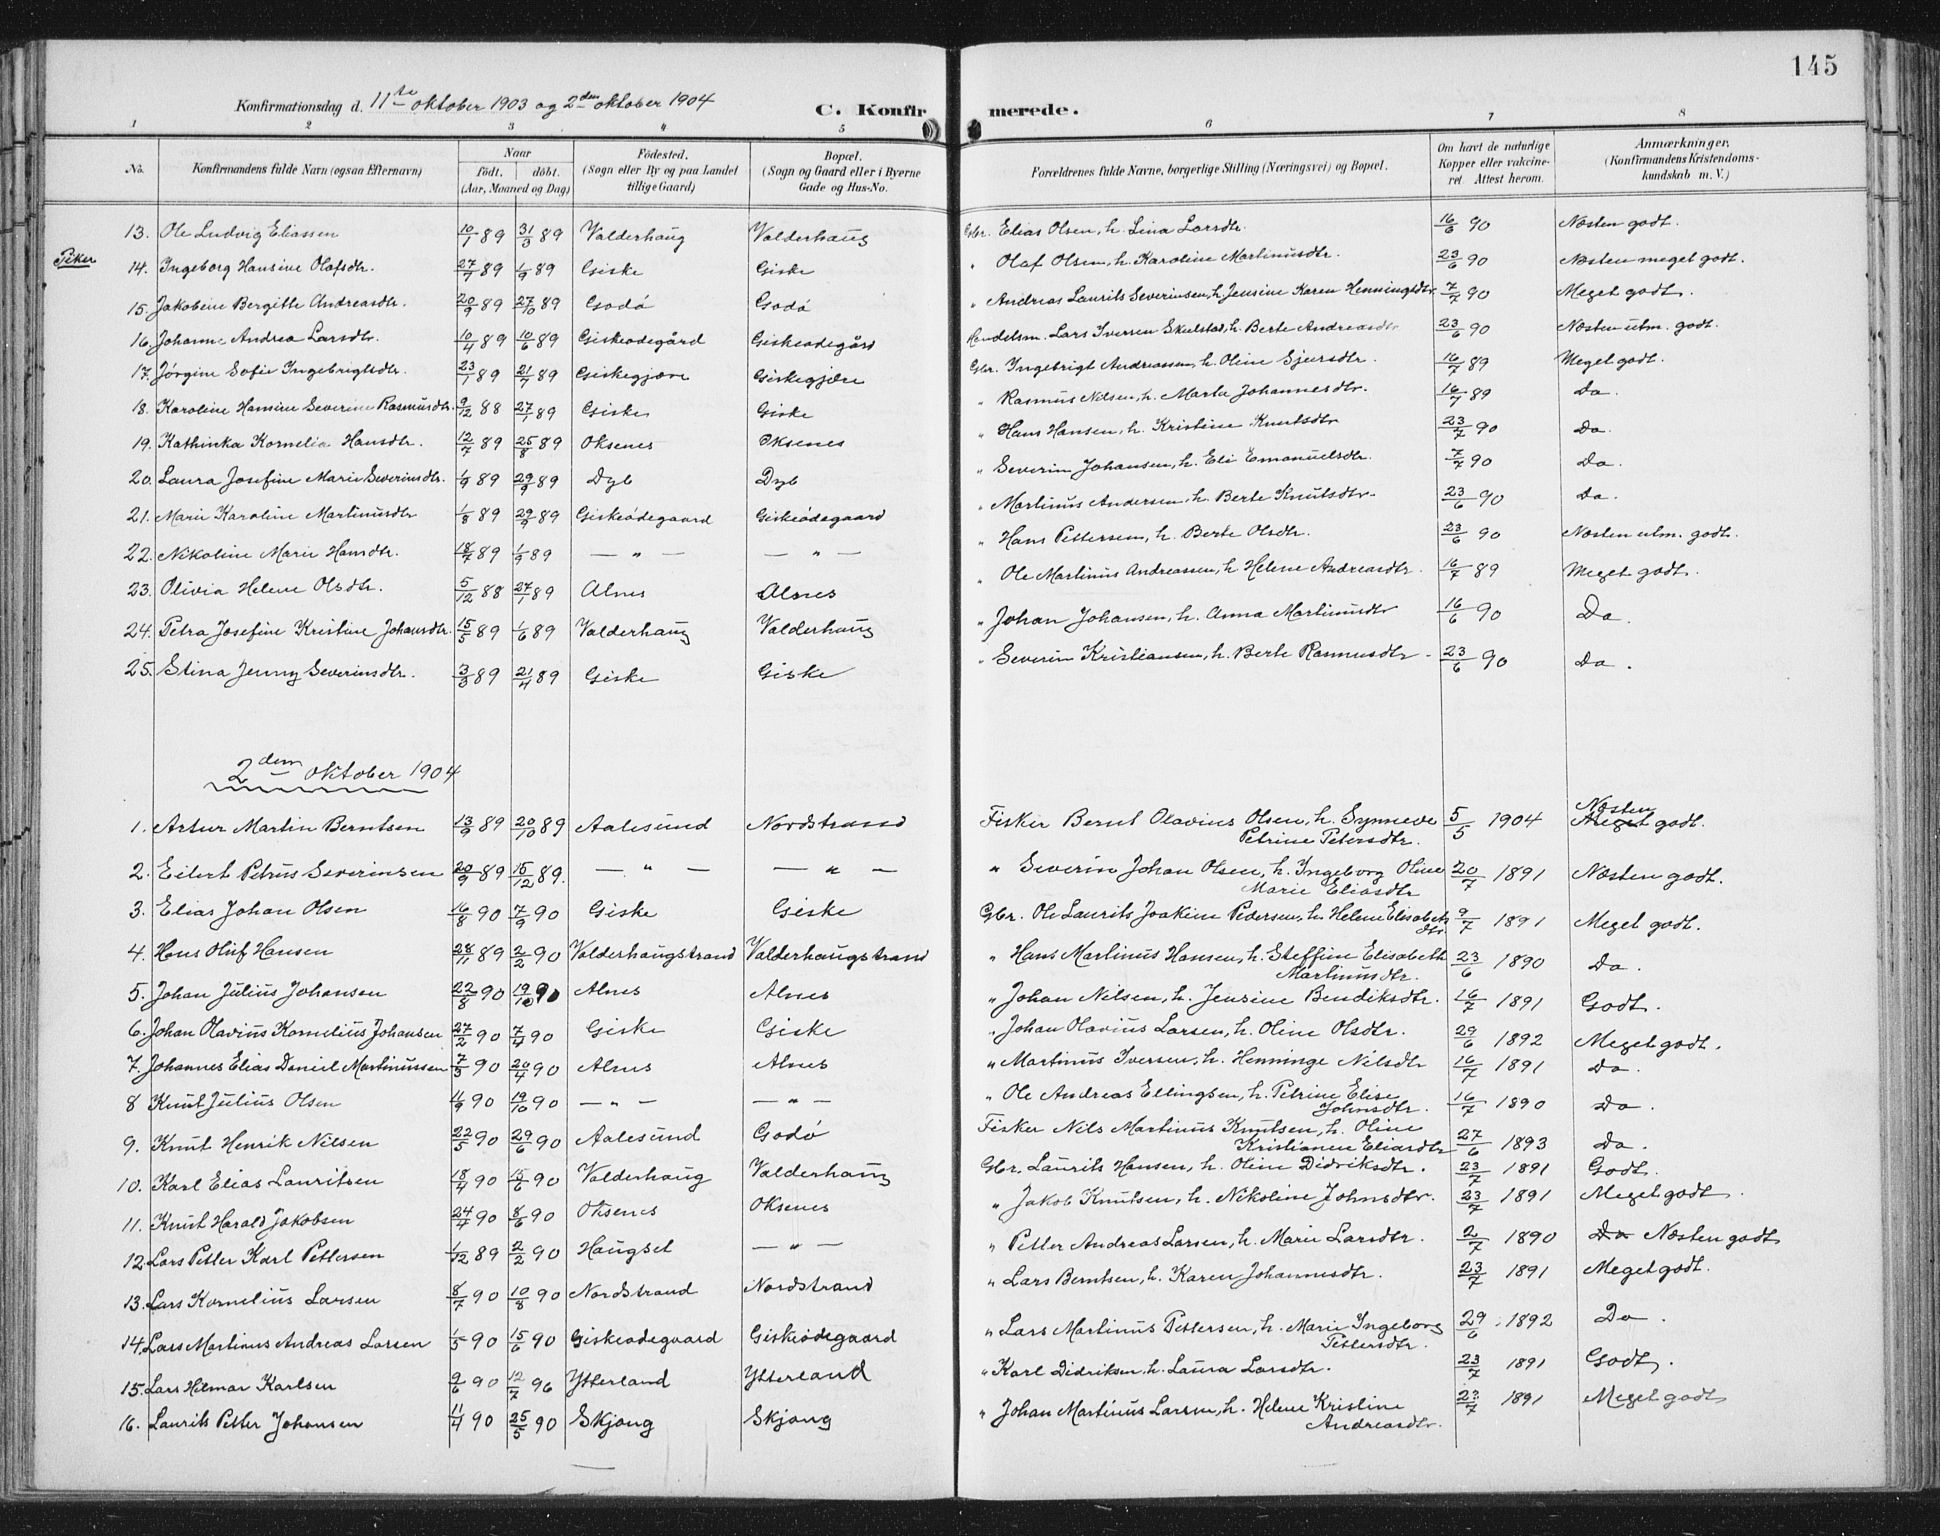 145
Konfirmationsdag d. 11te oktober 1903 og 2den oktober 1904 C. Konfirmerede.
1 2 3 4 5 6 7 8
No. Konfirmandens fulde Navn (ogsaa Efternavn) Naar født. døbt. (Aar, Maaned og Dag) Fødested. (Sogn eller By og paa Landet tillige Gaard) Bopæl. (Sogn og Gaard eller i Byerne Gade og Hus-No. Forældrenes fulde Navne, borgerlige Stilling (Næringsvei) og Bopæl. Om havt de naturlige Kopper eller vakcineret. Attest herom. Anmærkninger. (Konfirmandens Kristendomskundskab m. V.)
13. Ole Ludvig Eliassen 10/1 89 31/3 89 Valderhaug Valderhaug Gbr. Elias Olsen, h. Lina Larsdtr. 16/6 90 Næsten godt.
Piker
14. Ingeborg Hansine Olafsdtr. 27/7 89 1/9 89 Giske Giske " Olaf Olsen, h. Karoline Martinusdtr. 23/6 90 Næsten meget godt.
15. Jakobine Bergitte Andreasdtr. 20/9 89 27/10 89 Godø Godø " Andreas Laurits Severinsen, h. Jensine Karen Henningsdtr. 7/7 90 Meget godt.
16. Johanne Andrea Larsdtr. 10/4 89 10/6 89 Giskeødegård Giskeødegård Handelsm. Lars Iversen Skulstad, h. Berte Andreasdtr 23/6 90 Næsten utm. godt.
17. Jørgine Sofie Ingebrigtsdtr. 23/1 89 21/7 89 Giskegjære Giskegjære Gbr. Ingebrigt Andreassen, h. Oline Sjursdtr. 16/7 89 Meget godt.
18. Karoline Hansine Severine Rasmusdtr. 9/12 88 27/1 89 Giske Giske " Rasmus Nilsen, h. Marta Johannesdtr. 16/7 89 Do.
19. Kathinka Kornelia Hansdtr. 12/7 89 25/8 89 Oksenes Oksenes " Hans Hansen, h. Kristine Knutsdtr 23/7 90 Do.
20. Laura Josefine Marie Severinsdtr. 1/9 89 29/9 89 Dyb Dyb " Severin Johansen, h. Eli Emanuelsdtr. 7/7 90 Do.
21. Marie Karoline Martinusdtr 1/8 89 29/9 89 Giskeødegaard Giskeødegaard " Martinus Andersen h. Berte Knutsdtr. 23/6 90 Do.
22. Nikoline Marie Hansdtr. 18/7 89 1/9 89 — " — — " — " Hans Pettersen, h. Berte Olsdtr. 23/6 90 Næsten utm. godt.
23. Olivia Helene Olsdtr. 5/12 88 27/1 89 Alnes Alnes " Ole Martinus Andreassen, h. Helene Andreasdtr. 16/7 89 Meget godt.
24. Petra Josefine Kristine Johansdtr. 15/5 89 1/6 89 Valderhaug Valderhaug " Johan Johansen, h. Anna Martinusdtr 16/6 90 Do.
25. Stina Jenny Severinsdtr. 3/3 89 21/4 89 Giske Giske " Severin Kristiansen, h. Berte Rasmusdtr. 23/6 90 Do.
2den oktober 1904
1. Artur Martin Berntsen 13/9 89 20/10 89 Aalesund Nordstrand Fisker Bernt Olavius Olsen, h. Synneve Petrine Petersdtr. 5/5 1904 Næsten Meget godt.
2. Eilert Petrus Severinsen 20/9 89 15/12 89. — " — — " — " Severin Johan Olsen, h. Ingeborg Oline Marie Eliasdtr 20/7 1891 Næsten godt.
3. Elias Johan Olsen 16/8 90 7/9 90 Giske Giske Gbr. Ole Laurits Joakim Pedersen, h. Helene Elisabeth dtr. 9/7 1891 Meget godt.
4. Hans Oluf Hansen 28/11 89 2/2 90 Valderhaugstrand Valderhaugstrand " Hans Martinus Hansen, h. Steffine Elisabeth Martinusdtr. 23/6 1890 Do.
5. Johan Julius Johansen 22/8 90 19/10 90 Alnes Alnes " Johan Nilsen, h. Jensine Bendiksdtr. 16/7 1891 Godt.
6. Johan Olavius Kornelius Johansen 27/2 90 7/4 90 Giske Giske " Johan Olavius Larsen, h. Oline Olsdtr. 29/6 1892 Meget godt.
7. Johannes Elias Daniel Martinussen 7/3 90 20/4 90 Alnes Alnes " Martinus Iversen, h. Henninge Nilsdtr 16/7 1891 Do.
8 Knut Julius Olsen 11/9 90 19/10 90 — " — — " — " Ole Andreas Ellingsen, h. Petrine Elise Johnsdtr. 16/7 1890 Do.
9. Knut Henrik Nilsen 22/5 90 29/6 90 Aalesund Godø Fisker Nils Martinus Knutsen, h. Oline Kristianne Eliasdtr 27/6 1893 Do.
10. Karl Elias Lauritsen 18/4 90 15/6 90 Valderhaug Valderhaug Gbr. Laurits Hansen, h. Oline Didriksdtr. 23/7 1891 Godt.
11. Knut Harald Jakobsen 24/4 90 8/6 90 Oksenes Oksenes " Jakob Knutsen, h. Nikoline Johnsdtr. 23/7 1891 Meget godt.
12. Lars Petter Karl Pettersen 1/12 89 2/2 90 Haugset — " — " Petter Andreas Larsen, h. Marie Larsdtr. 2/7 1890 Do Næsten godt
13. Lars Kornelius Larsen 8/7 90 10/8 90 Nordstrand Nordstrand " Lars Berntsen, h. Karen Johannesdtr. 23/7 1891 Meget godt.
14. Lars Martinus Andreas Larsen 1/5 90 15/6 90 Giskeødegaard Giskeødegaard " Lars Martinus Pettersen, h. Marie Ingeborg Pettersdtr. 29/6 1892 Do.
15. Lars Hilmar Karlsen 9/6 90 12/7 96 Ytterland Ytterland " Karl Didriksen, h. Laura Larsdtr. 23/7 1891 Godt.
16. Laurits Petter Johansen 11/4 90 25/5 90 Skjong Skjong " Johan Martinus Larsen, h. Helene Kristine Andreasdtr. 23/7 1891 Meget godt